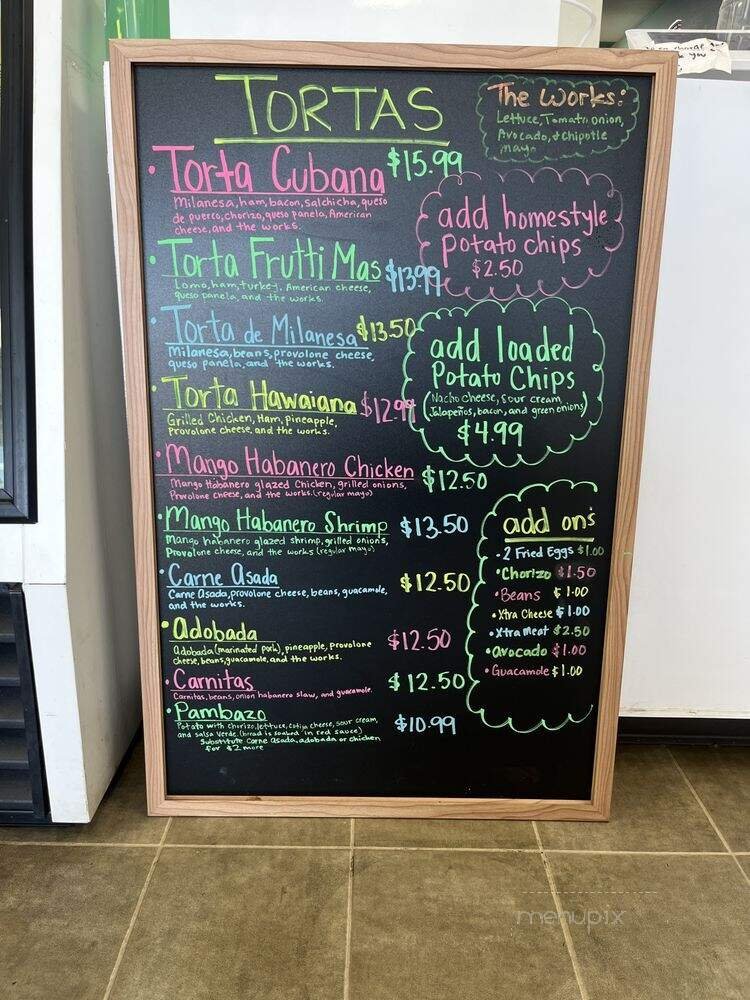 TORTAS
The Works:
Lettuce, Tomato, onion,
Avocado, & Chipotle
mayo
• Torta Cubana $15.99
Milanesa, ham, bacon, salchicha, queso
de puerco, chorizo, queso panela, American
cheese, and the works.
add homestyle
potato chips
$2.50
• Torta Frutti Mas $13.99
Lomo, ham, turkey, American cheese,
queso panela, and the works.
• Torta de Milanesa $13.50
Milanesa, beans, provolone cheese,
queso panela, and the works.
add loaded
Potato Chips
(Nacho cheese, sour cream,
Jalapeños, bacon, and green onions)
$4.99
• Torta Hawaiana $12.99
Grilled Chicken, Ham, pineapple,
Provolone cheese, and the works.
• Mango Habanero Chicken $12.50
Mango Habanero glazed Chicken, grilled onions,
Provolone cheese, and the works. (regular mayo)
• Mango Habanero Shrimp $13.50
Mango habanero glazed shrimp, grilled onions,
Provolone cheese, and the works (regular mayo)
• Carne Asada $12.50
Carne Asada, provolone cheese, beans, guacamole,
and the works.
• Adobada $12.50
Adobada (marinated pork), pineapple, provolone
cheese, beans, guacamole, and the works.
• Carnitas $12.50
Carnitas, beans, onion habanero slaw, and guacamole.
• Pambazo $10.99
Potato with chorizo, lettuce, cotija cheese, sour cream,
and salsa verde. (bread is soaked in red sauce)
Substitute Carne Asada, adobada or chicken
for $2 more
add on's
• 2 Fried Eggs $1.00
• Chorizo $1.50
• Beans $1.00
• Xtra Cheese $1.00
• Xtra Meat $2.50
• Avocado $1.00
• Guacamole $1.00
menupix